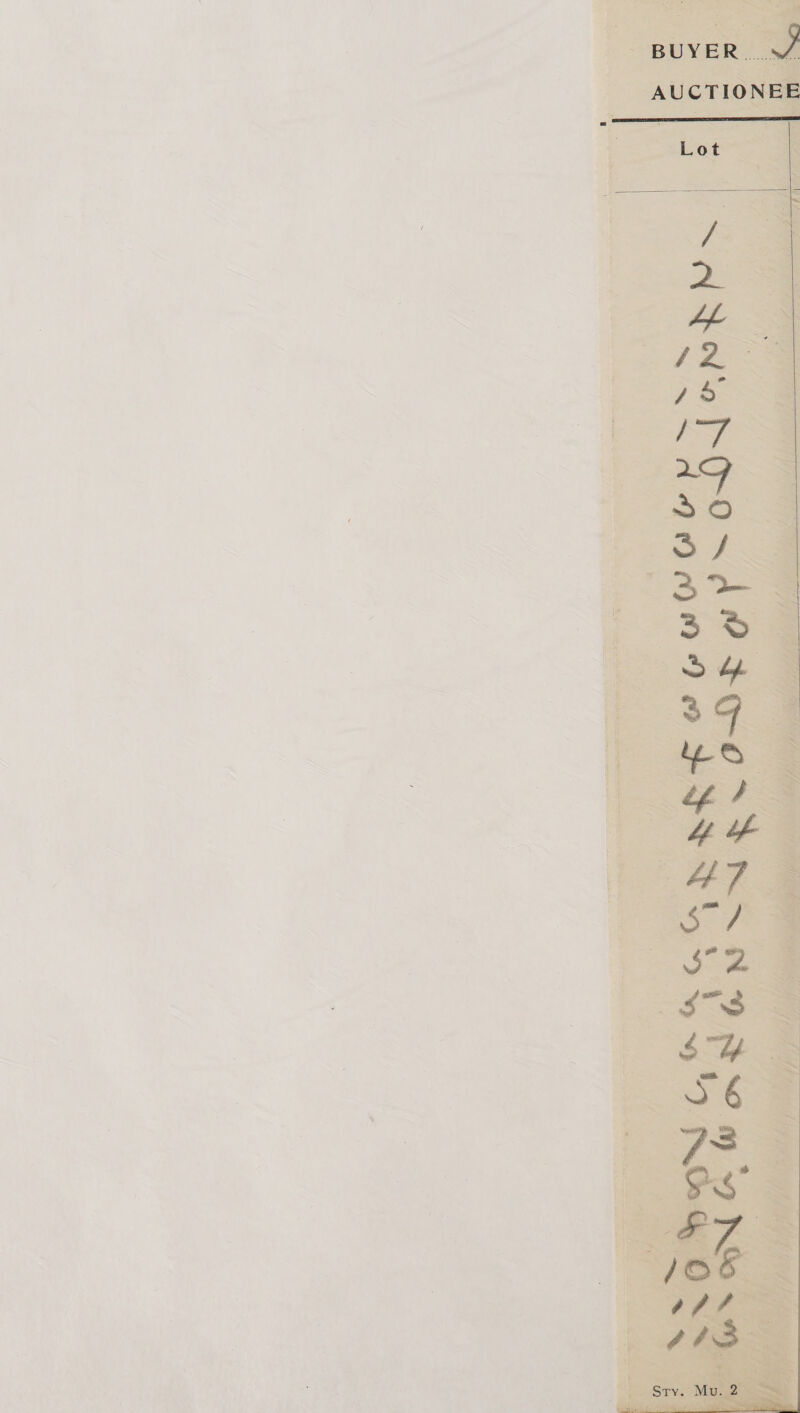 BUYER
AUCTIONEE
Lot
1
2
4
12
15
17
29
30
31
32
33
34
39
40
41
44
47
51
52
53
54
56
73
85
87
108
111
113
Sty. Mu. 2